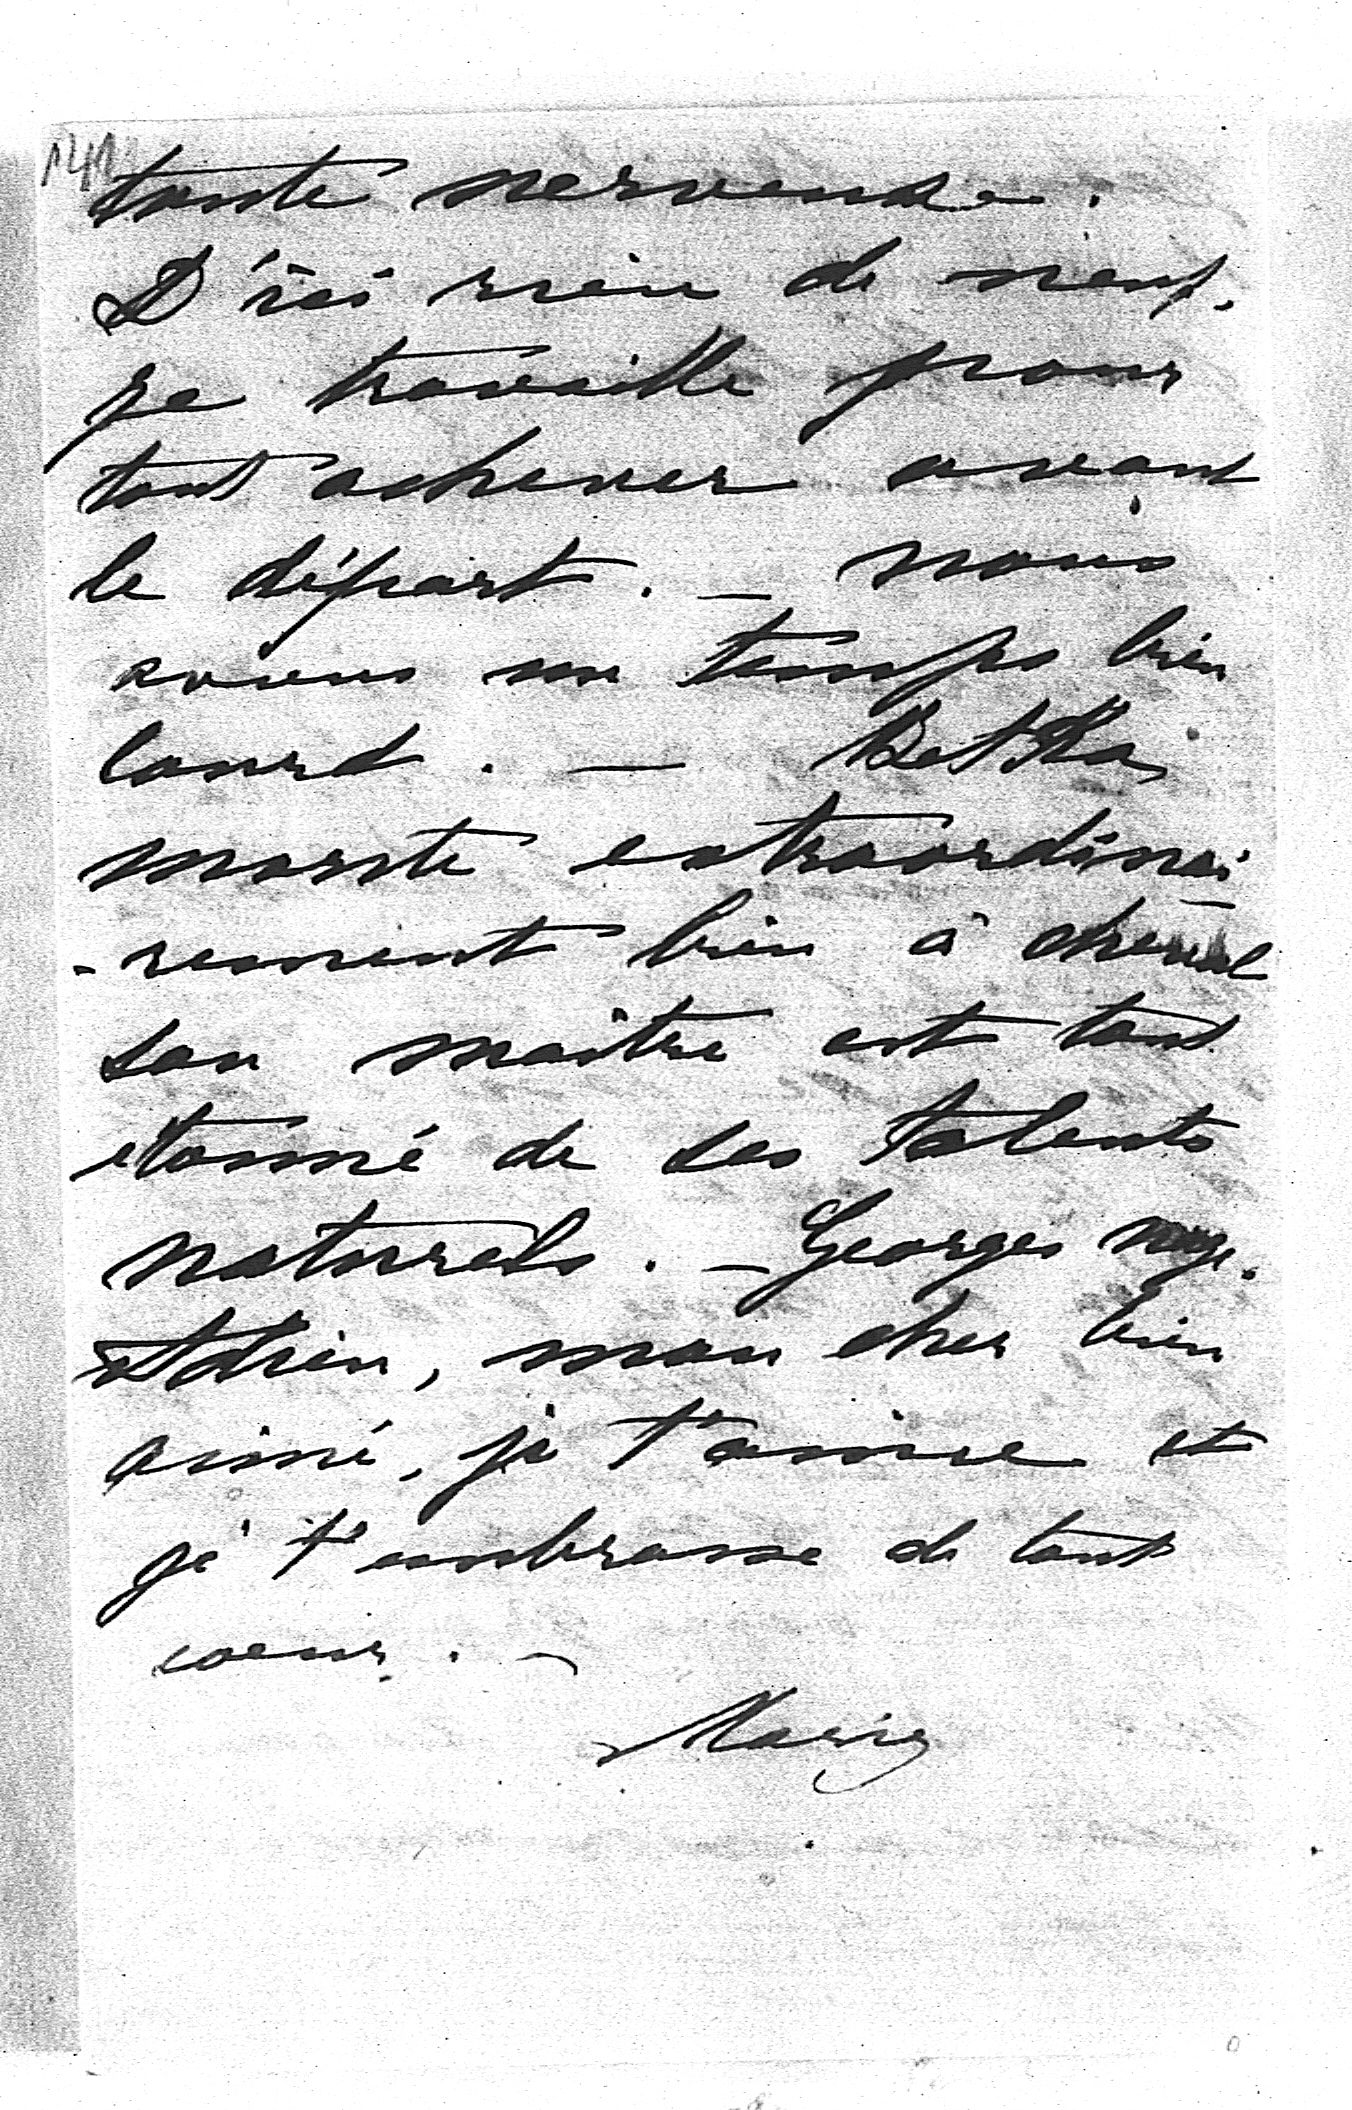 141
toute nerveuse.
D'ici rien de neuf,
je travaille pour
tout achever avant
le départ. — nous
avons un temps bien
lourd. — Betka
monte extraordinai
-rement bien à cheval
son maître est tout
étonné de ses talents
naturels. — Georges nage.
Adieu, mon cher bien
aimé, je t'aime et
je t'embrasse de tout
coeur. —
Marie